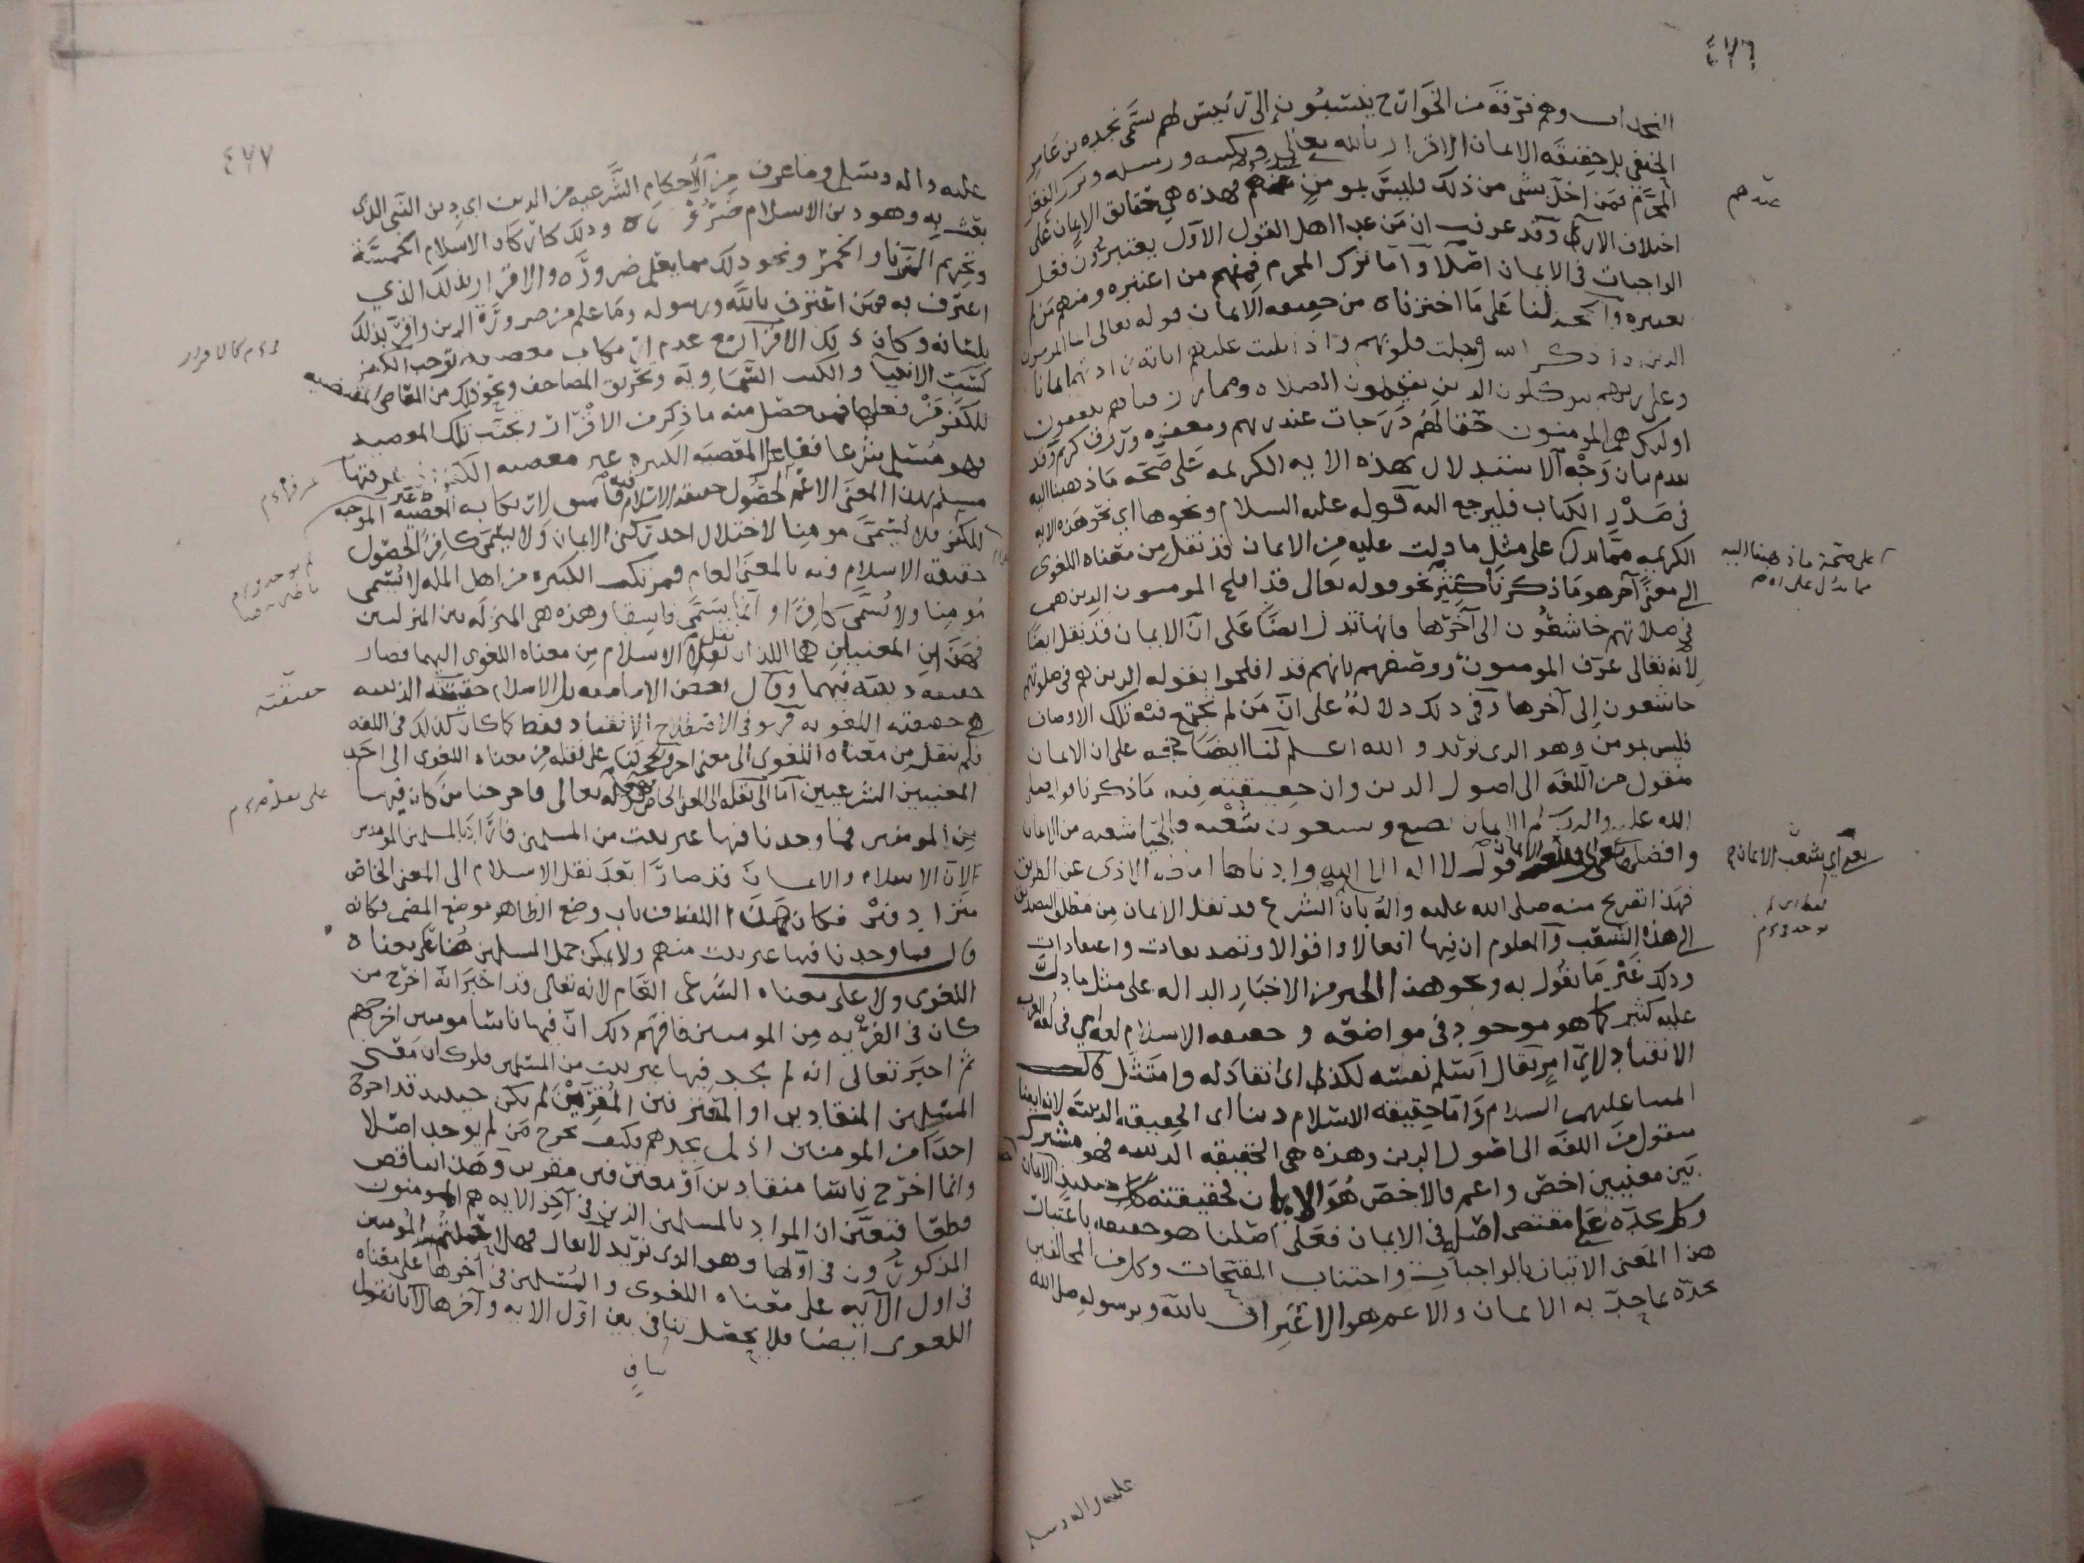 ٤٧٦
النجدات وهم فرقة من الخوارج ينتسبون الى رئيس لهم يسمى نجده بن عامر
الحنفي بل حقيقه الايمان الاقرار بالله تعالى وبكتبه ورسله وترك الفعل
المحرم فمن اخل بشى من ذلك فليس بمومن عندهم فهذه هي حقايق الايمان على
عندهم
اختلاف الاراء وقد عرفت ان من عدا اهل القول الاول يعتبرون فعل
الواجبات فى الايمان اصلا واما ترك المحرم فمنهم من اعتبره ومنهم من لم
يعتبره والحجه لنا على ما اخترناه من حقيقه الايمان قوله تعالى انما المومنون
الذين اذا ذكر الله وجلت قلوبهم واذا تليت عليهم اياته زادتهم ايمانا
وعلى ربهم يتوكلون الذين يقيمون الصلاه ومما رزقناهم ينفقون
اولئك هم المومنون حقا لهم درجات عند ربهم ومغفره ورزق كريم وقد
تقدم بيان وجه الاستدلال بهذه الايه الكريمه على صحه ما ذهبنا اليه
فى صدر الكتاب فليرجع اليه قوله عليه السلام ونحوها اي نحو هذه الايه
الكريمه مما يدل على مثل ما دلت عليه من الايمان قد نقل من معناه اللغوى
على صحة ما ذهبنا اليه
مما يدل على
الى معنى آخر هو ما ذكرنا كثير نحو قوله تعالى قد افلح المومنون الذين هم
فى صلاتهم خاشعون الى آخرها فانها تدل ايضا على ان الايمان قد نقل ايضا
لانه تعالى عرف المومنون ووصفهم بانهم قد افلحوا بقوله الذين هم فى صلوتهم
خاشعون الى آخرها وفي ذلك دلالة على ان من لم تجتمع فيه تلك الاوصاف
فليس بمومن وهو الذى نريد والله اعلم لنا ايضا حجه على ان الايمان
منقول من اللغه الى اصول الدين وان حقيقته فيه ما ذكرنا قوله صلى
الله عليه واله وسلم الايمان بضع وسبعون شعبه والحيا شعبه من الايمان
وافضلها قول لا اله الا الله وادناها اماطه الاذى عن الطريق
اي شعب الايمان
فهذا تصريح منه صلى الله عليه واله بان الشرع قد نقل الايمان من مطلق التصديق
الى هذه الشعب والمعلوم ان فيها افعالا واقوالا وتصديقات واعتقادات
وذلك غير ما نقول به ونحو هذا الخبر من الاخبار الداله على مثل ما دل
عليه كثير كما هو موجود فى مواضعه وحقيقه الاسلام لغه اي فى لغه العرب
الانقياد لاي امر يقال استلم نفسه لكذا اى انقاد له وامتثل
عليهم السلام واما حقيقه الاسلام دينا اى الحقيقه الدينيه لانه ايضا
منقول من اللغه الى اصول الدين وهذه هي الحقيقه الدينيه فهو مشترك
بين معنيين اخص واعم فالاخص هو الايمان فحقيقته حقيقه الايمان
وكل يحده على مقتضى اصله فى الايمان فعلى اصلنا هو حقيقه باعتبار
هذا المعنى الاتيان بالواجبات واجتناب المقبحات وكل من المخالفين
يحده بما يحد به الايمان والاعم هو الاعتراف بالله وبرسوله صلى الله
عليه واله وسلم
٤٧٧
عليه واله وسلم وما عرف من الأحكام الشرعيه من الدين اي دين النبى الذى
بعث به وهو دين الاسلام ضروره وذلك كاركان الاسلام الخمسة
وتحريم الزنا والخمر ونحو ذلك مما يعلم ضروره والاقرار بذلك الذي
اعترف به فمن اعترف بالله وبرسوله وما علم من ضرورة الدين واقر بذلك
بلسانه وكان ذلك الاقرار مع عدم ارتكاب معصيه توجب الكفر
كسب الانبيآ والكتب السماويه وتحريق المصاحف ونحو ذلك من المعاصى المقتضيه
كالاقرار
للكفر فمن حصل منه ما ذكر من الاقرار وتجنب تلك المعصيه
فهو مسلم شرعا ففاعل المعصيه الكبيره غير معصيه الكفر
مسلم بهذا المعنى الاعم لحصول حقيقه الاسلام فيه فاسق لارتكابه المعصيه غير الموجبه
للكفر فلا يسمى مومنا لاختلال احد ركنى الايمان ولا يسمى كافرا لحصول
حقيقه الاسلام فيه بالمعنى العام فمرتكب الكبيره من اهل المله لا يسمى
مومنا ولا يسمى كافرا وانما يسمى فاسقا وهذه هى المنزله بين المنزلتين
فهذان المعنيان هما اللذان نقل الاسلام من معناه اللغوى اليهما فصار
حقيقه دينيه فيهما وقال بعض الاماميه بل الاسلام حقيقته الدينيه
حقيقته
هي حقيقته اللغويه فهو فى الاصطلاح الانقياد فقط كما كان كذلك فى اللغه
فلم ينقل من معناه اللغوى الى معنى اخر والحجه لنا على نقله من معناه اللغوى الى احد
المعنيين الشرعيين اما الى نقله الى المعنى الخاص قوله تعالى فاخرجنا من كان فيها
من المومنين فما وجدنا فيها غير بيت من المسلمين فاراد بالمسلمين المومنين
لان الاسلام والايمان قد صارا بعد نقل الاسلام الى المعنى الخاص
مترادفين فكان هذا اللفظ من باب وضع الظاهر موضع المضمر فكانه
قال فما وجدنا فيها غير بيت منهم ولا يمكن حمل المسلمين هنا على معناه
اللغوى ولا على معناه الشرعى العام لانه تعالى قد اخبر انه اخرج من
كان فى القريه من المومنين فافهم ذلك ان فيها ناسا مومنين اخرجهم
ثم اخبر تعالى انه لم يجد فيها غير بيت من المسلمين فلو كان معنى
المسلمين المنقادين او المعترفين المقرين لم يكن حينئذ قد اخرج
احدا من المومنين اذ لم يجدهم فكيف يخرج من لم يوجد اصلا
وانما اخرج ناسا منقادين او معترفين مقرين وهذا تناقض
قطعا فتعين ان المراد بالمسلمين الذين فى آخر الايه هم المومنون
المذكورون فى اولها وهو الذى نريد لا يقال فهلا حملتم المومنين
فى اول الآيه على معناه اللغوى والمسلمين فى آخرها على معناه
اللغوى ايضا فلا يحصل تنافى بين اول الايه وآخرها لانا نقول